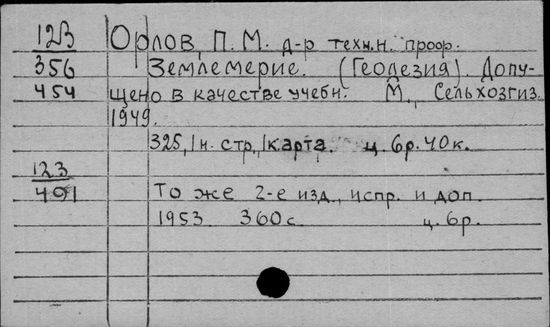 123 Орлов, П. М. д-р техн.н. проф.
356 Землемерие. (Геодезия). Допу-
454 щено в качестве учебн. М., Сельхозгиз.
1949.
325, 1 н. стр., 1 карта. ц. 6р. 40к.
123
491 То же 2-е изд., испр. и доп.
1953. 360 с. ц. 6р.